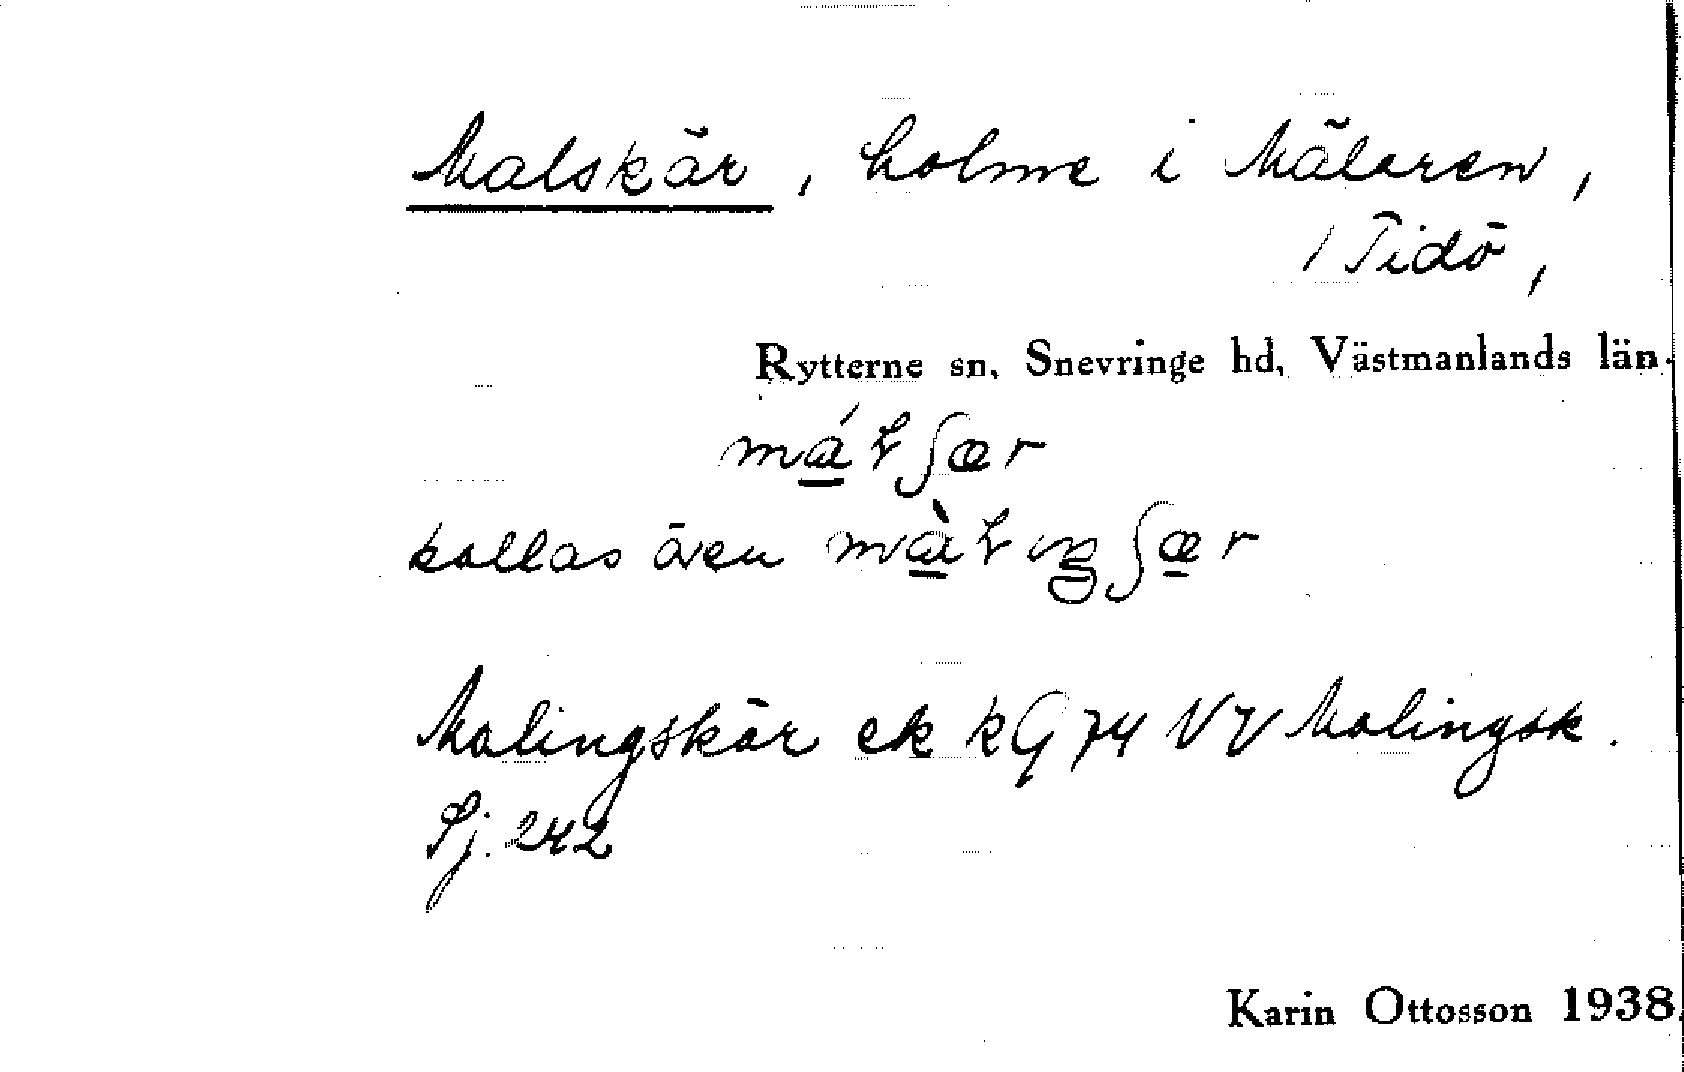 Malskär, holme i Mälaren,
/ Tidö,
Rytterne sn, Snevringe hd, Västmanlands län.
kallas även
Malingskär ek kG 74 NV Malingsk.
Sj. 242
Karin Ottosson 1938.